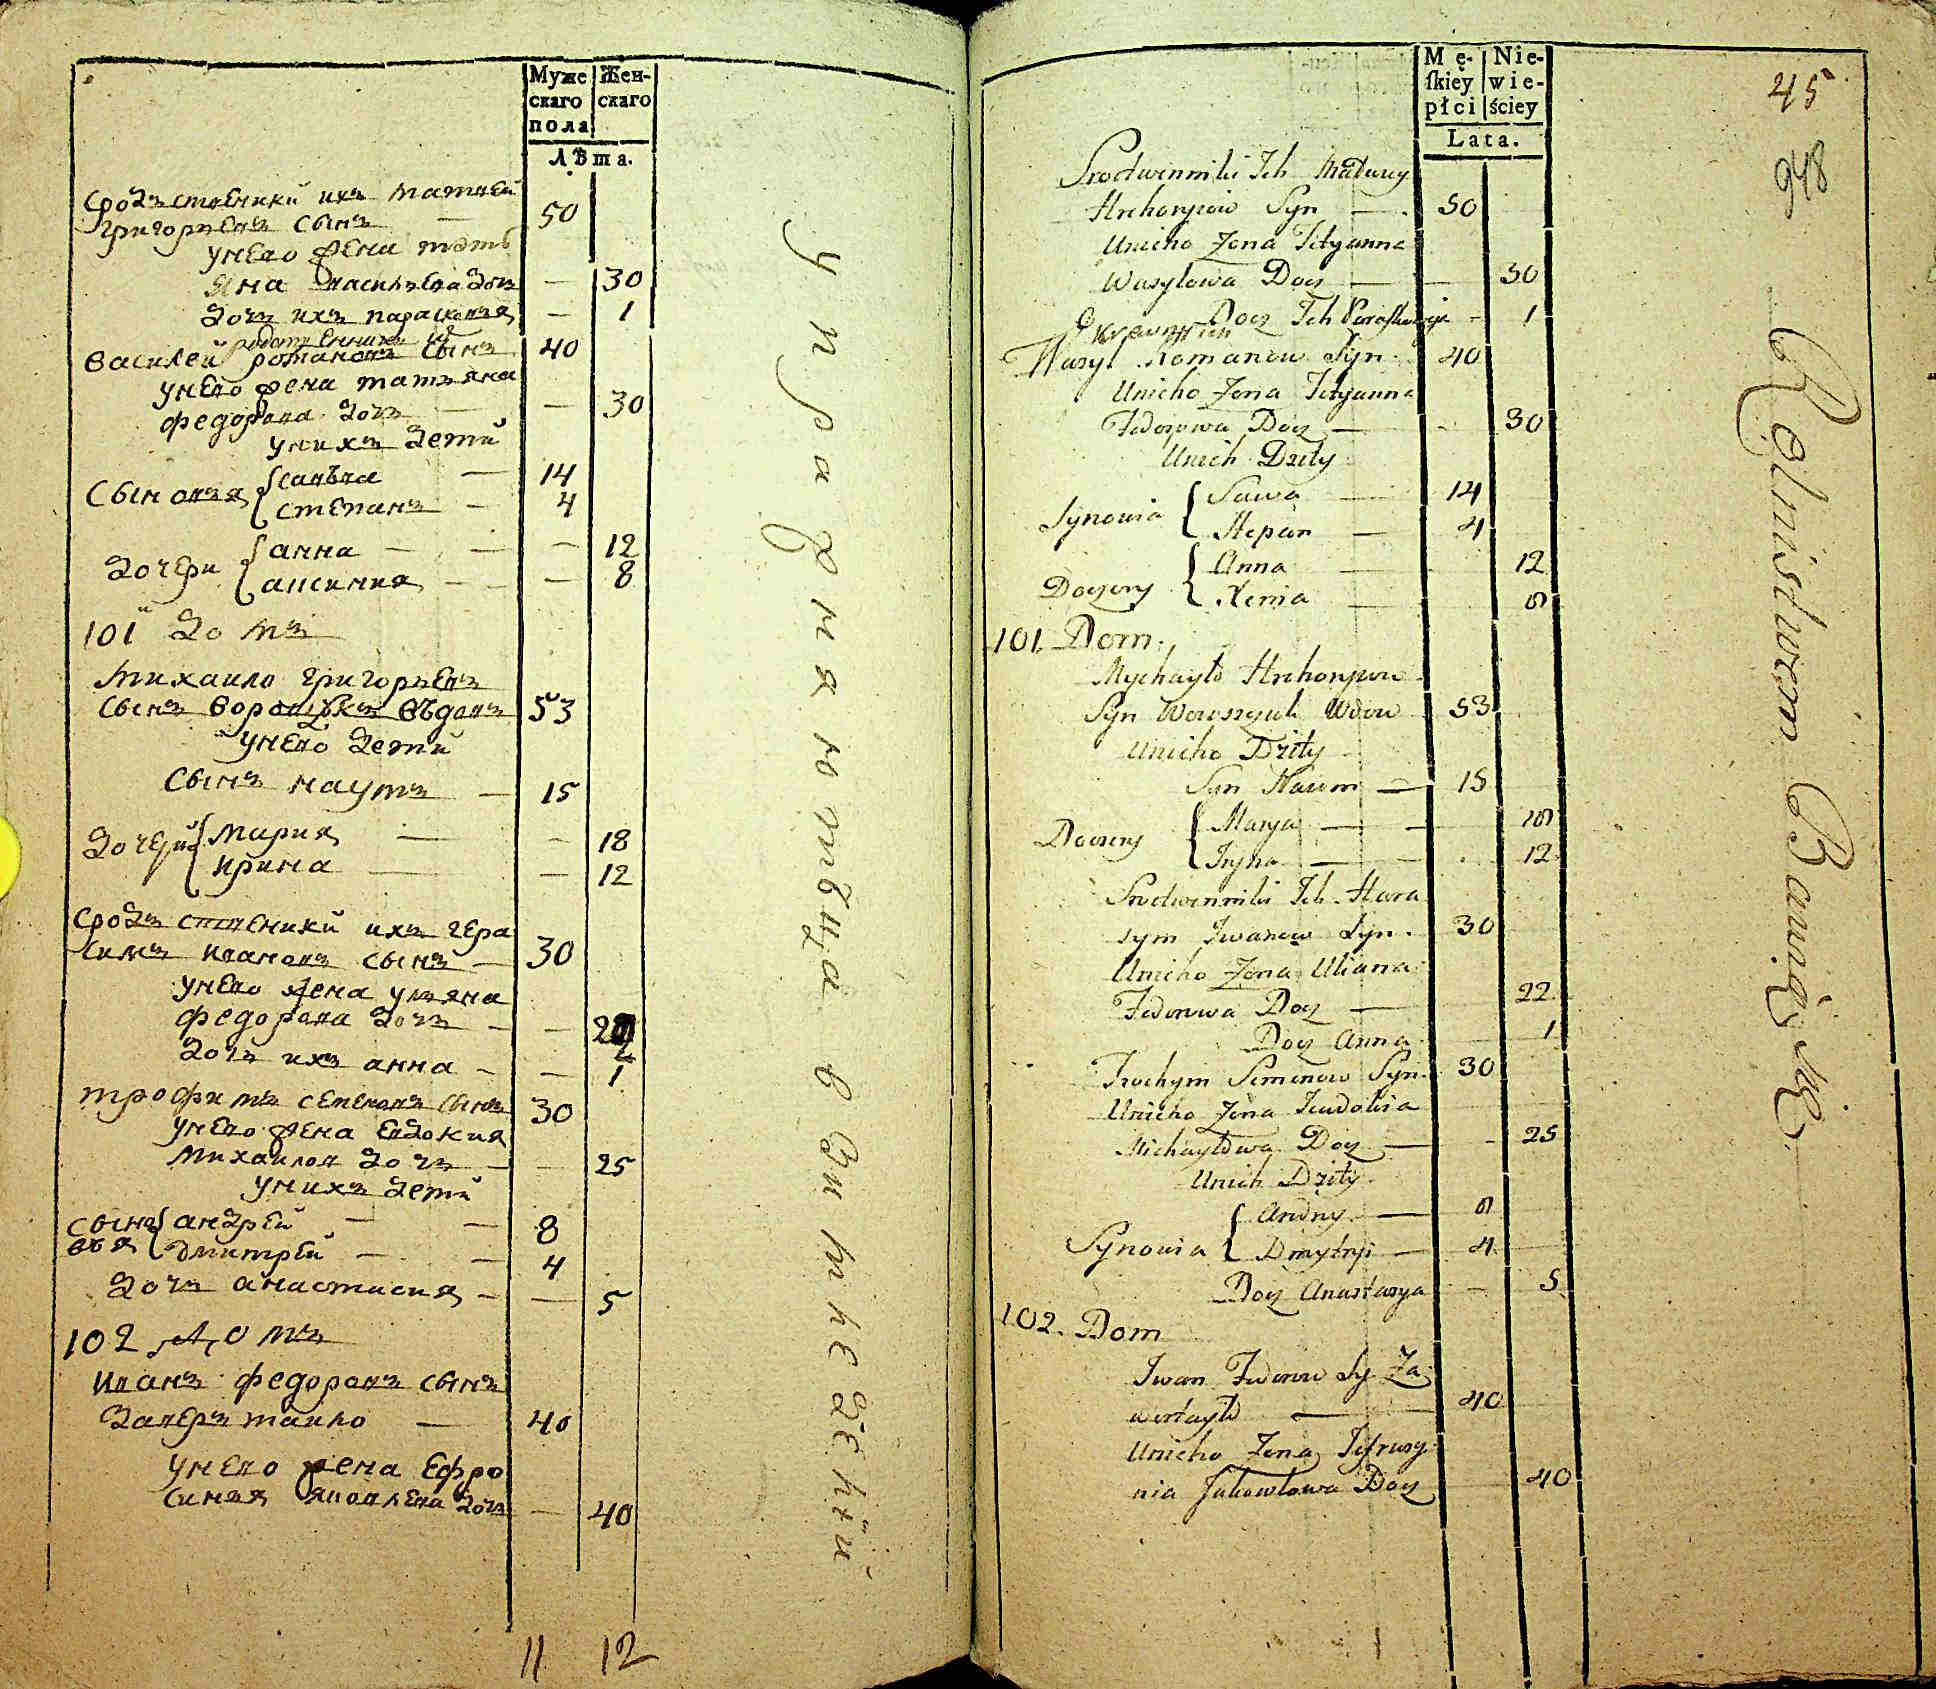 Муже Жен-
скаго скаго
пола
Лѣта.
сродственники ихъ матвей
григорьевъ сынъ — 50
у него жена тать
яна васильева дочь — 30
дочь ихъ парасковья — 1
василей романовъ сынъ 40
у него жена татьяна
федорова дочь — 30
у нихъ дети
сыновья { савва — 14
степанъ — 4
дочери { анна — — 12
аксиния — — 8
101й домъ
михаило григорьевъ
сынъ ворощукъ вѣдовъ 53
у него дети
сынъ наумъ — 15
дочери { мария — — 18
ирина — — 12
сродственники ихъ гера
симъ ивановъ сынъ — 30
у него жена ульяна
федорова дочь — — 22
дочь ихъ анна — — 1
трофимъ семеновъ сынъ 30
у него жена евдокия
михаилова дочь — — 25
у нихъ дети
сыно
вья { андрей — — 8
дмитрей — — 4
дочь анастасия — — 5
102 домъ
иванъ федоровъ сынъ
заверътайло — 40
у него жена ефро
синья яковлева дочь — 40
11 12
упражняютъца в винокурении
Mę- Nie-
skiey wie-
płci ściey
Lata.
45
948
Srodwenniki Ich Matwiey
Hrehoryiow Syn — 50
Unieho Zona Tetyanna
Wasylowa Docz — — 30
Docz Ich Paraskewija — 1
Wasyl Romanow Syn 40
Unieho Zona Tetyanna
Fedorowa Docz — 30
Unich Dzity
Synowia { Sawa — 14
Stepan — 4
Doczery { Anna — 12
Xenia — 8
101. Dom.
Mychayło Hrehoryow
Syn Woroszczuk Wdow 53
Unieho Dzity
Syn Naum — 15
Doczery { Marya — — 18
Iryna — — 12
Srodwenniki Ich Hara
sym Iwanow Syn. 30
Unieho Zona Uliana
Fedorowa Docz — 22
Docz Anna 1
Trochym Semenow Syn 30
Unieho Zona Iewdokia
Michayłowa Docz — — 25
Unich Dzity
Synowia { Andry — 8
Dmytryi — 4
Docz Anastasya — 5
102. Dom
Iwan Fedorow Sy Za
wertayło — — 40
Unieho Zona Iefrosy
nia Jakowłowa Docz 40